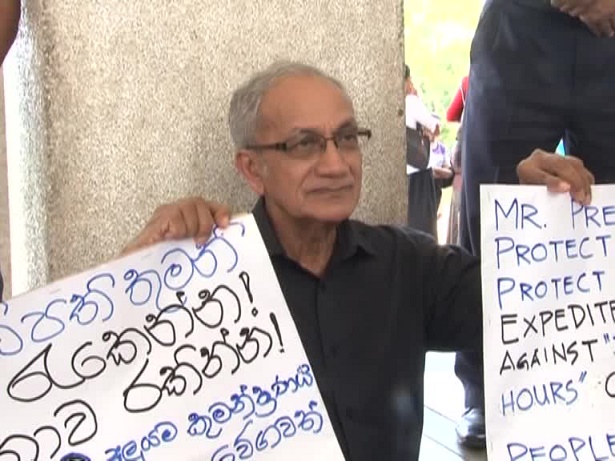 තුමනි
රැකෙන්න!
රකින්න!
අලුයම
වේගවත්
MR. PRE
PROTECT
PROTECT
EXPEDITE
AGAINST "
HOURS"
PEOPLE